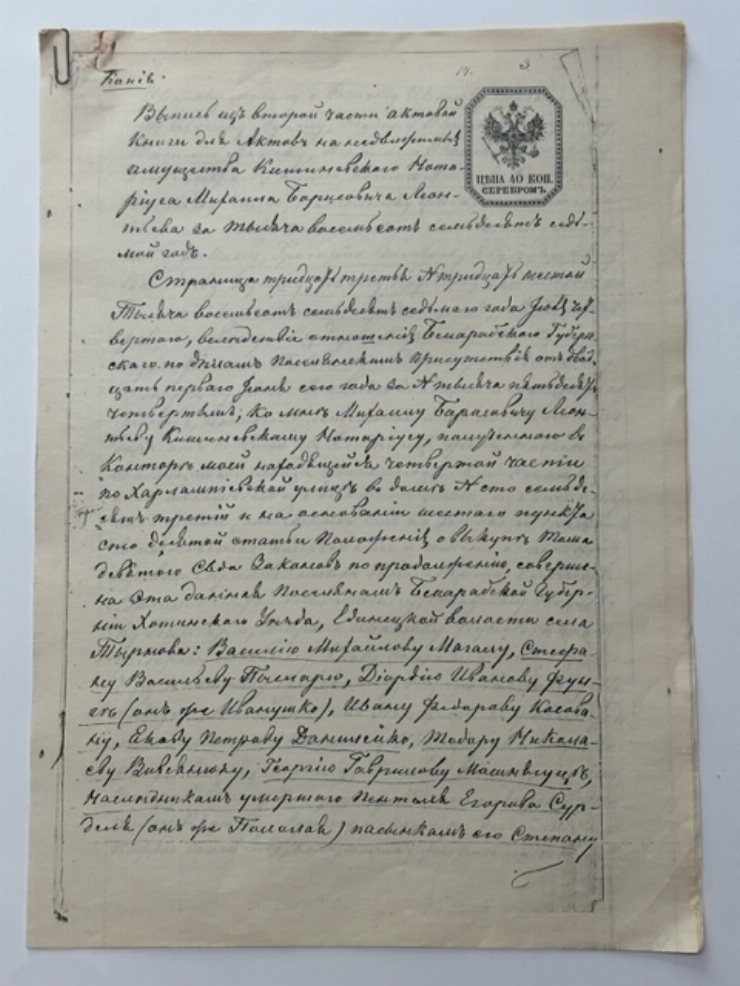 Копія.
14. 3
Выпись изъ второй части актовой
книги для Актовъ на недвижимыя
имущества Кишиневскаго Нота-
ріуса Михаила Борисовича Леон-
тьева за тысяча восемьсотъ семьдесятъ седь-
мой годъ.
ЦѢНА 40 КОП.
СЕРЕБРОМЪ.
Страница тридцать третья № тридцать шестой
Тысяча восемьсотъ семьдесятъ седьмаго года Іюля чет-
вертаго, вслѣдствіе отношенія Бессарабскаго Губерн-
скаго по дѣламъ поселянскимъ присутствія отъ двад-
цать перваго Іюня сего года за № тысяча пятьдесятъ
четвертымъ, ко мнѣ Михаилу Борисовичу Леон-
тьеву Кишиневскому Нотаріусу, полученнаго въ
Конторѣ моей находящейся четвертой части
по Харлампіевской улицѣ въ домѣ № сто семьде-
сятъ третій и на основаніи шестаго пункта
сто девятой статьи Положенія о выкупѣ Тома
девятаго Свода Законовъ по продолженію, соверше-
на эта данная поселянамъ Бессарабской Губер-
ніи Хотинскаго Уѣзда, Единецкой волости села
Тырнова: Василію Михайлову Магалу, Стефа-
ну Васильеву, Діордію Иванову
(онъ же Иванушко), Ивану Федорову Косова-
ну, Екову Петрову Данилейко, Тодору Никола-
еву, Георгію Гаврилову
наслѣдникамъ умершаго Пентелея Егорова Сур-
деля (онъ же) пасынкамъ его Степану